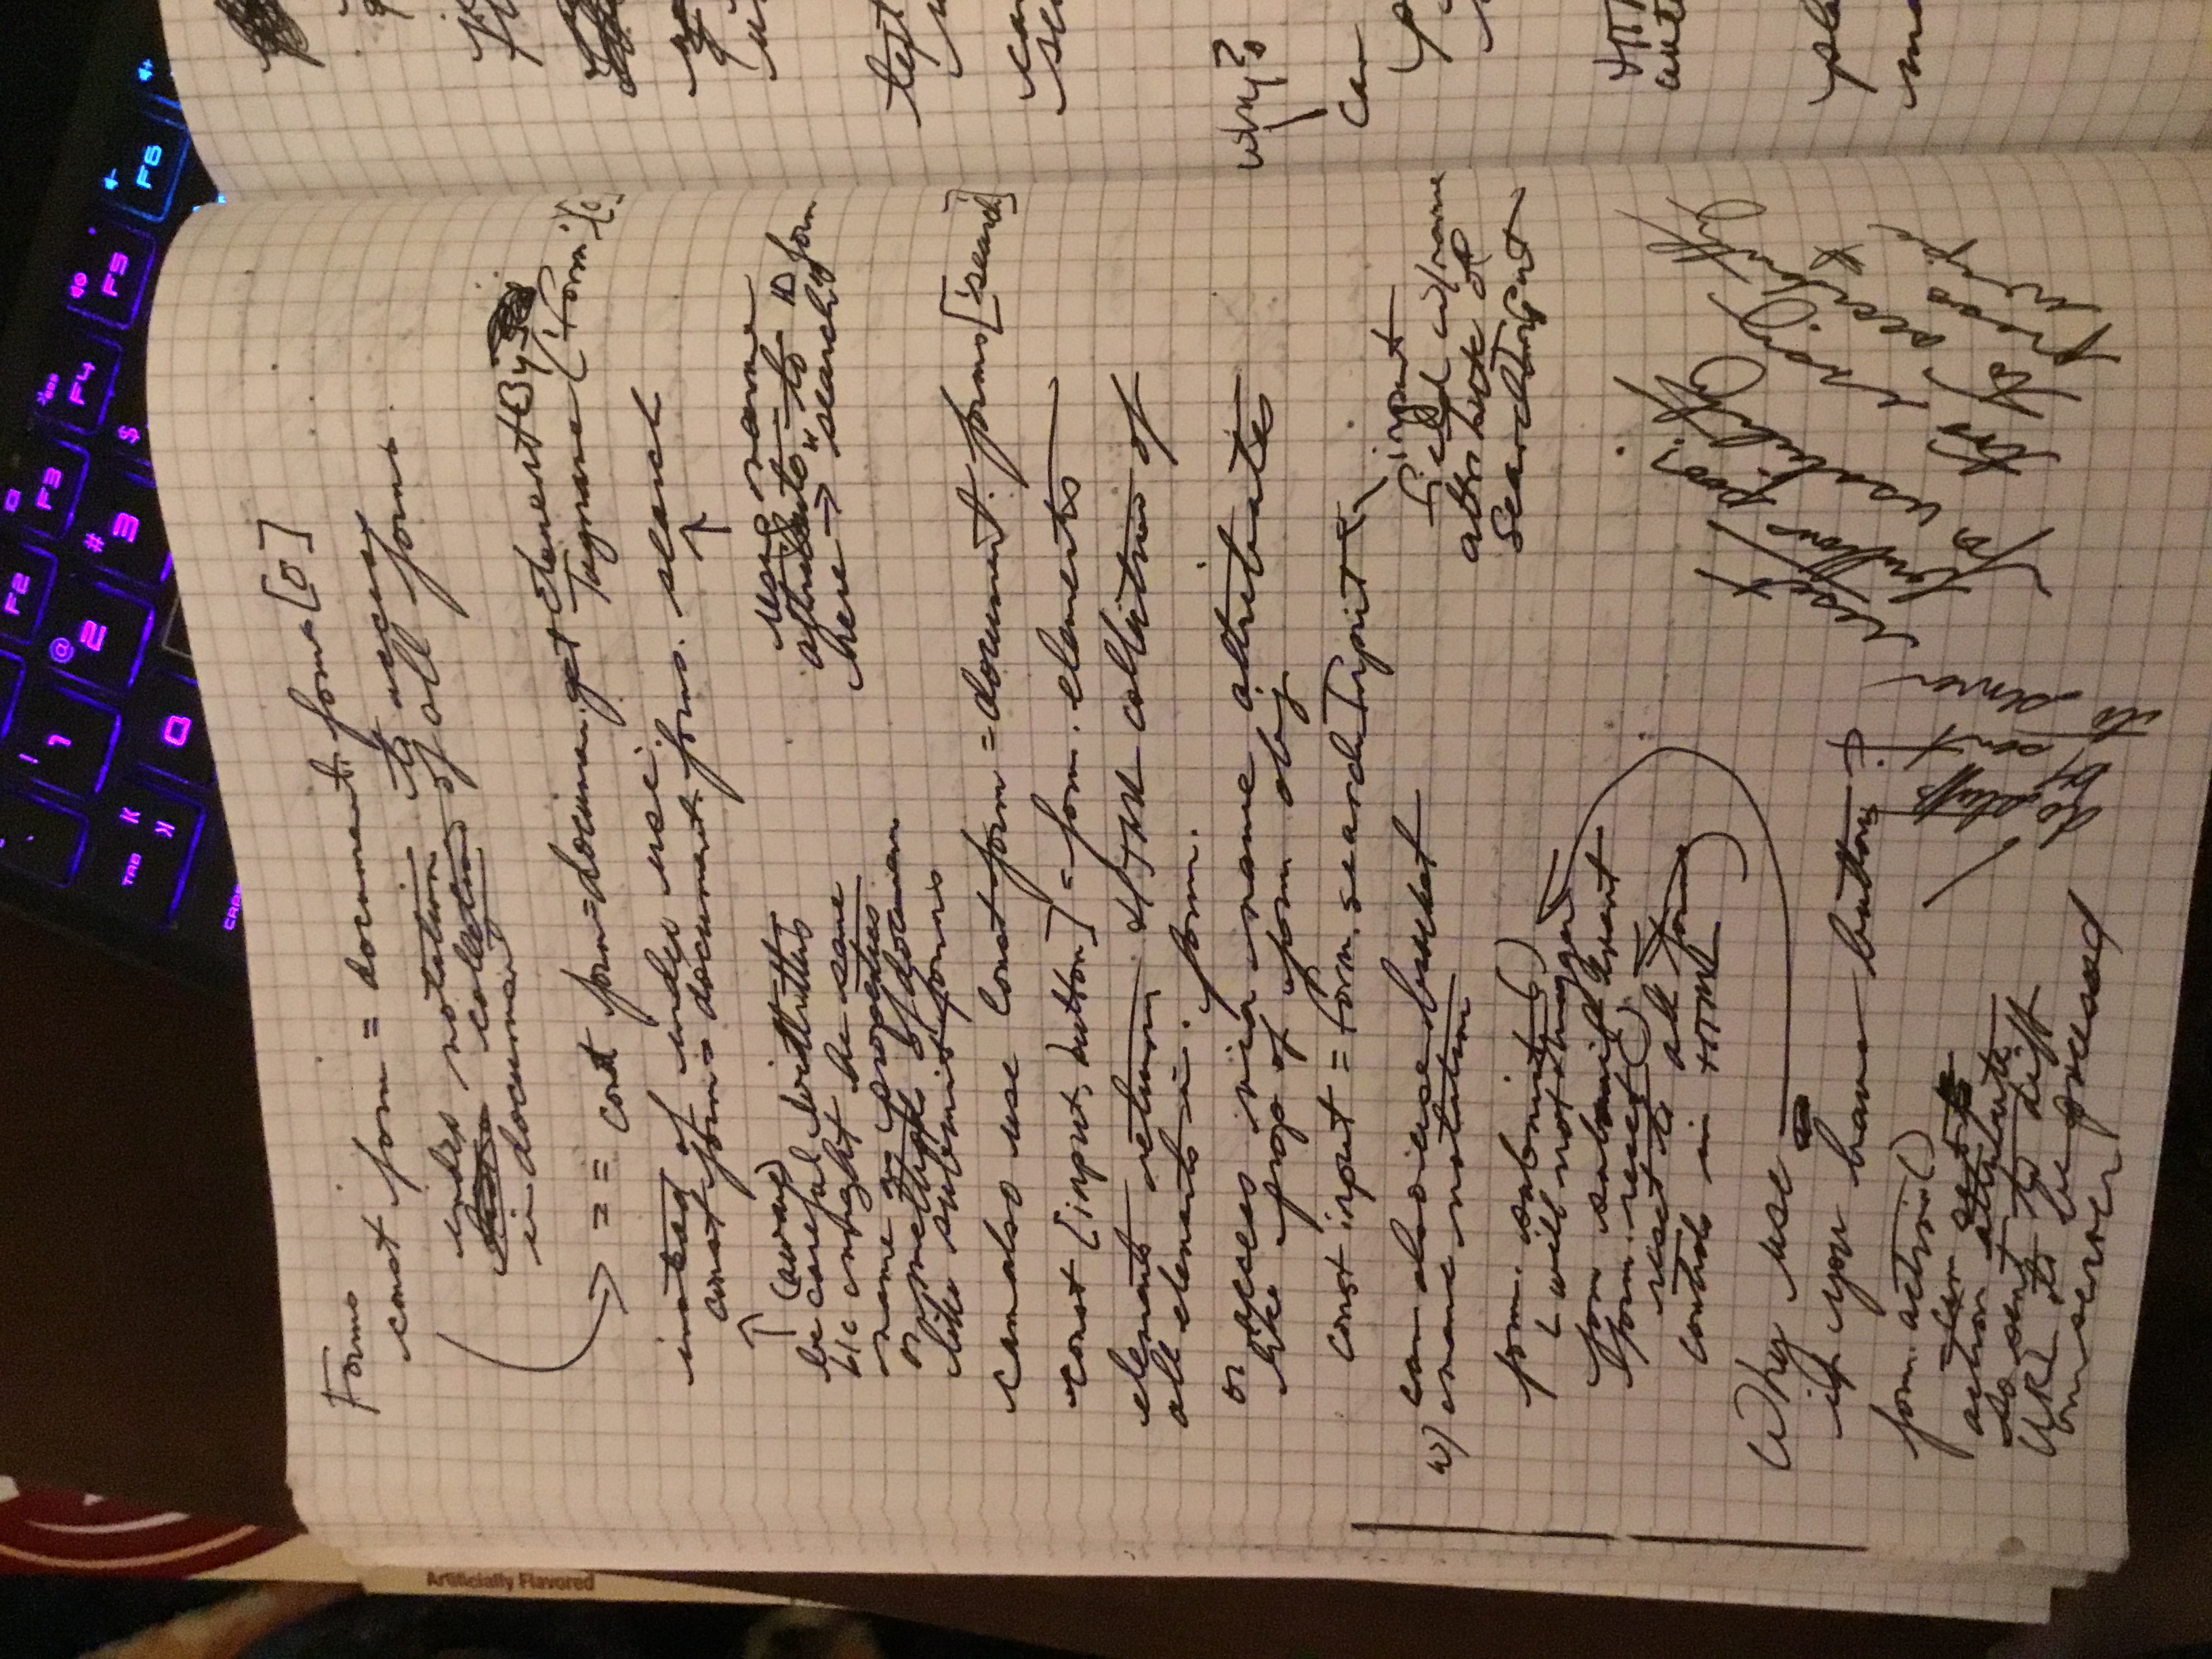 Forms
const form = document.forms[0]
index notation to access
collection of all forms
in document
== const form = documen.getElementBy
Tagname('form')[0
instead of index use:
const form = document.forms.search
↑
↑
(aware)
be careful with this
b/c might be same
name as properties
or methods of documen
like submit forms
using name
attribute to ID form
here → "search"
can also use const form = document.forms['search']
const [input, button] = form.elements
elements returns HTML collection of
all elements in form.
or access via name attributes
like prop of form obj
const input = form.searchInput
input
field w/name
attribute of
SearchInput
can also use bracket
w/ name notation
form.submit()
will not trigger
form submit event
form.reset()
reset to all form
controls in HTML
Why use
if you have button?
do stuff
b4 sent
to server
form.action()
can set
action attribute
so sent to diff
URL to be processed
on server
reset
buttons poor
for usability
too easy
to accidently
press &
wipe
F2
F3
F4
F5
F6
!
1
@
2
#
3
$
TAB
Q
CAPS
Artificially Flavored
text
Why?
can